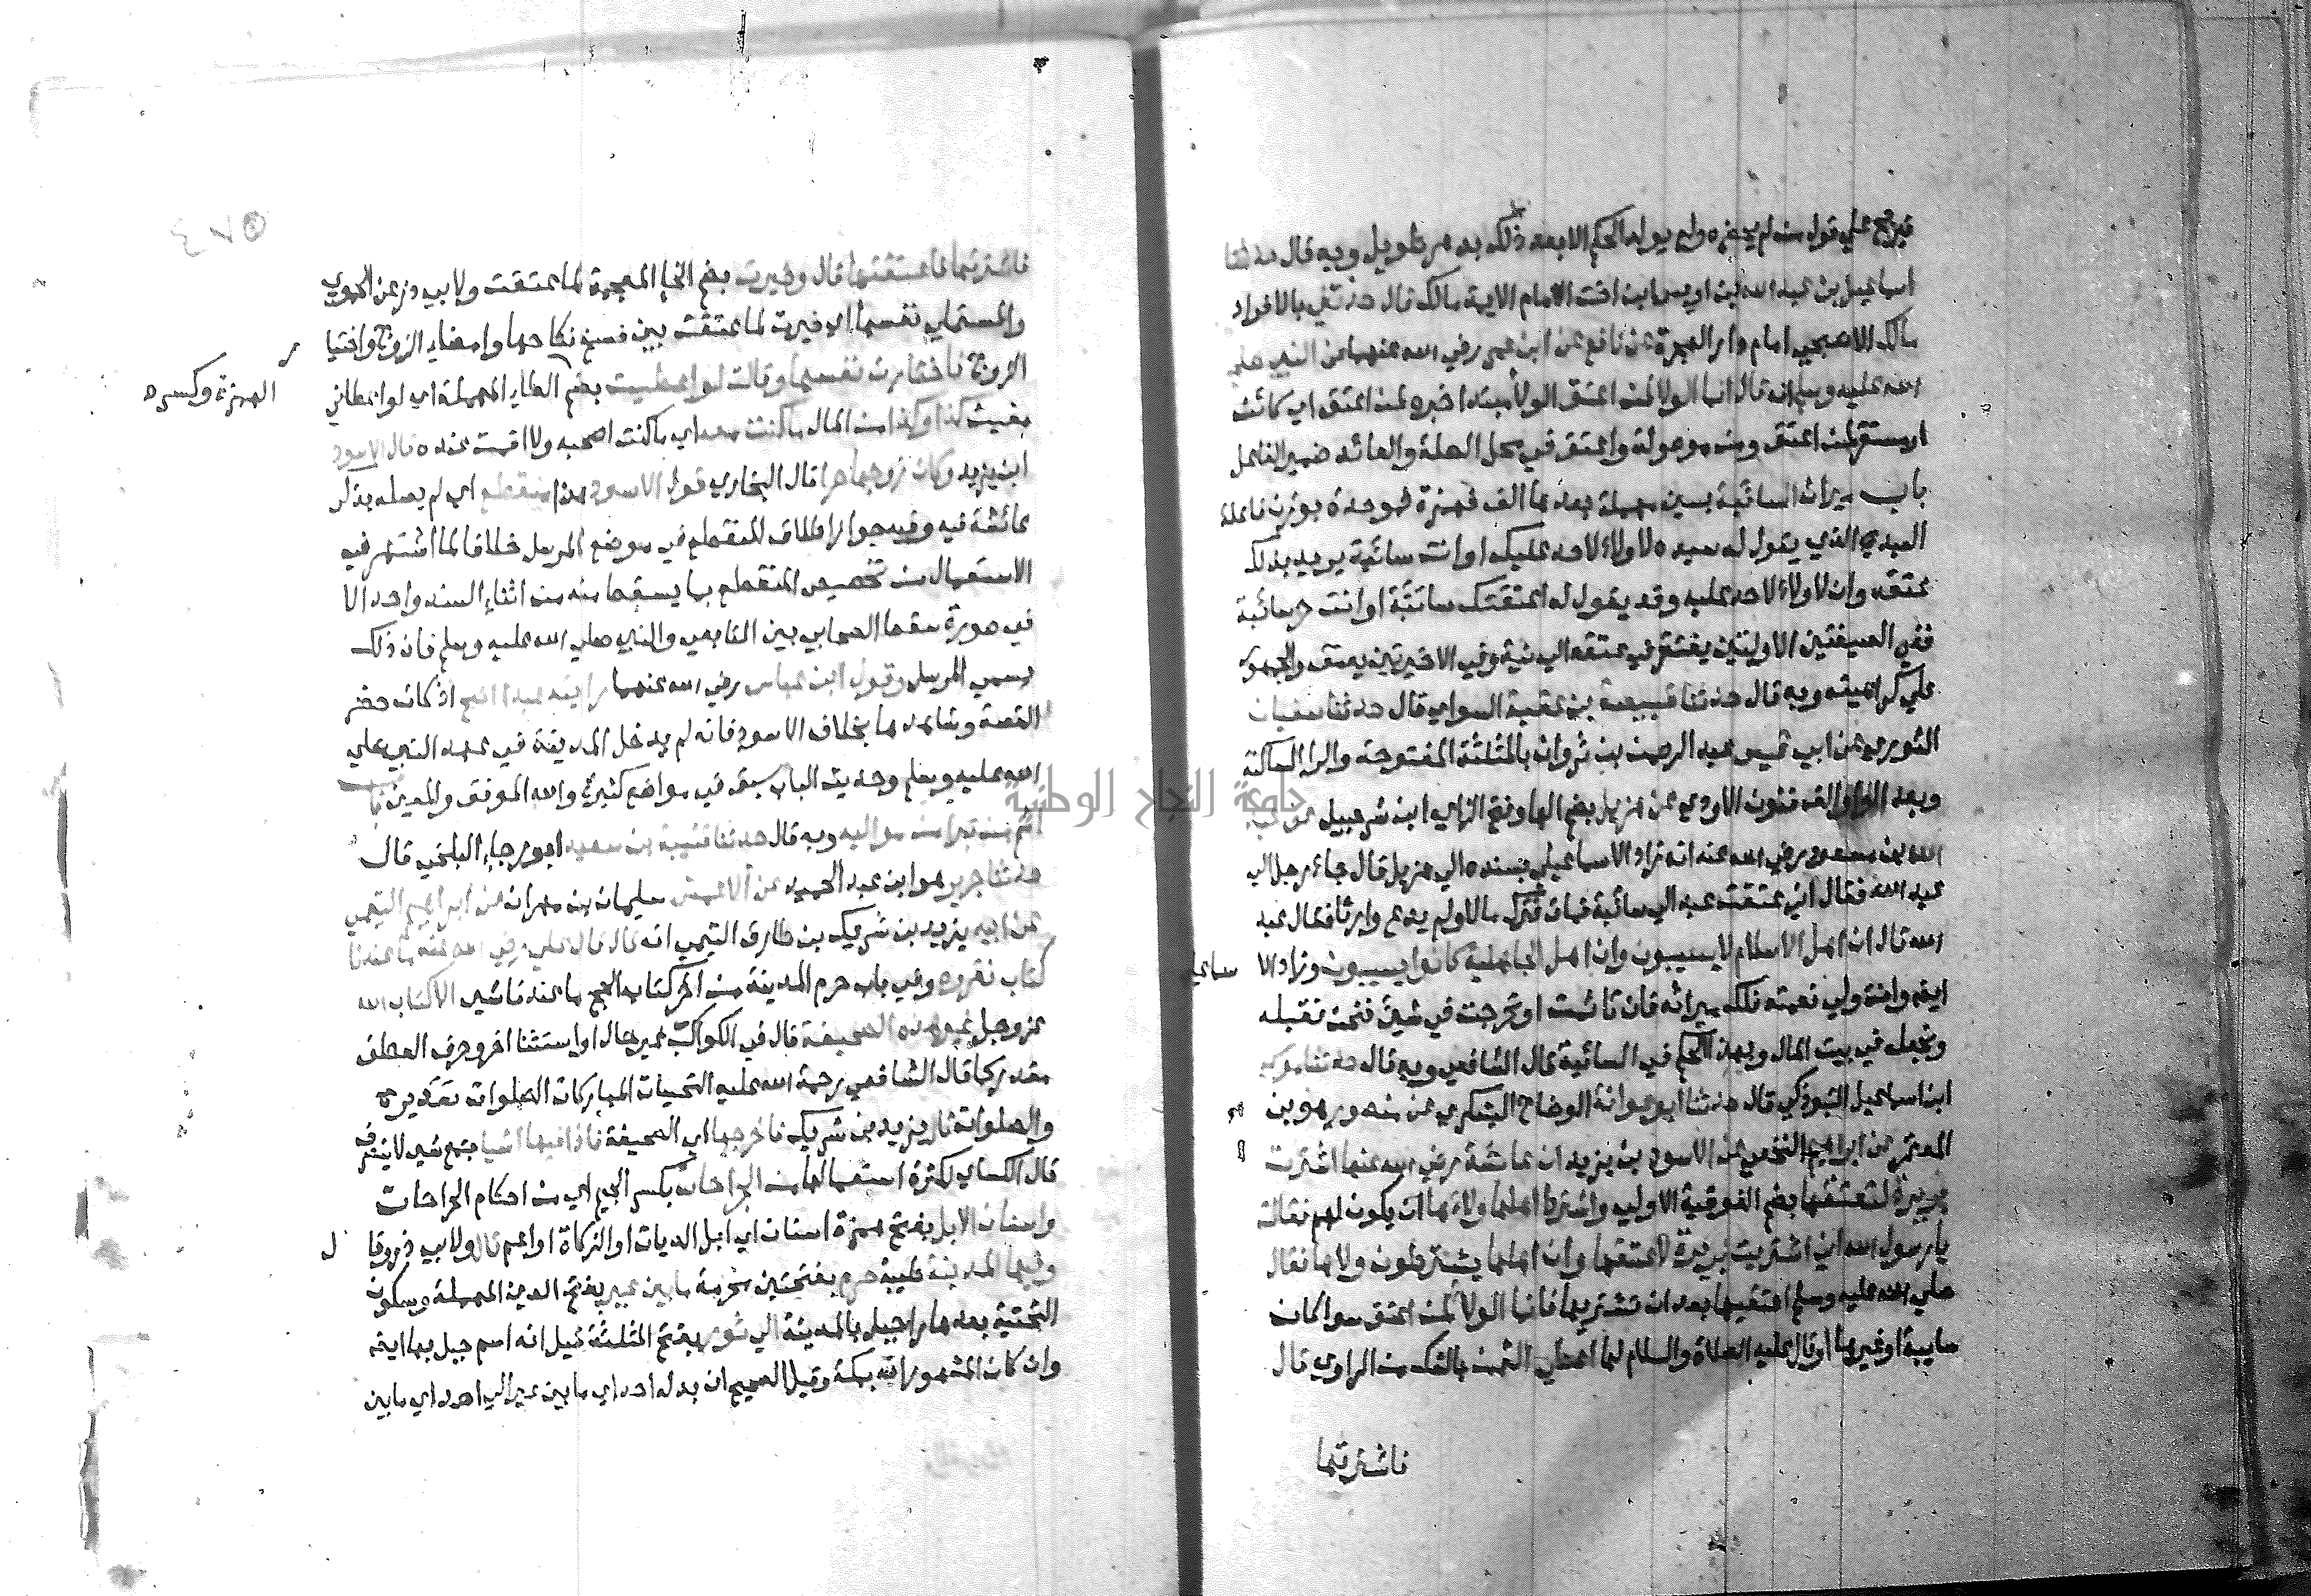 فيرجح علي قول من لم يحضره ولم يولد الحكم الا بعد ذلك بدهر طويل وبه قال حدثنا
اسماعيل بن عبد الله بن اويس ابن اخت الامام الايمة مالك قال حدثني بالافراد
مالك الاصبحي امام دار الهجرة عن نافع عن ابن عمر رضي الله عنهما عن النبي صلي
الله عليه وسلم انه قال انما الولا لمن اعتق الولا مبتدا خبره لمن اعتق اي كائن
او مستقر لمن اعتق ومن موصولة واعتق في محل الصلة والعائد ضمير الفاعل
باب ميراث السائبة بسين مهملة بعدها الف فهمزة فموحدة بوزن فاعلة
العبد الذي يقول له سيده لا ولاء لاحد عليك او انت سائبة يريد بذلك
عتقه وان لا ولاء لاحد عليه وقد يقول له اعتقتك سائبة او انت حر سائبة
ففي الصيغتين الاوليتين يفتقر في عتقه الي نية وفي الاخيرتين يعتق والجمهور
علي كراهيته وبه قال حدثنا قبيصة بن عقبة السواي قال حدثنا سفيان
الثوري عن ابي قيس عبد الرحمن بن ثروان بالمثلثة المفتوحة والرا الساكنة
وبعد الواو الف فنون الاودي عن هزيل بضم الها وفتح الزاي ابن شرحبيل عن عبد
الله بن مسعود رضي الله عنه انه زاد الاسماعيلي بسنده الي هزيل قال جاء رجل الي
عبد الله فقال اني عتقت عبد الي سائبة فمات فترك مالا ولم يدع وارثا فقال عبد
الله قال ان اهل الاسلام لا يسيبون وان اهل الجاهلية كانوا يسيبون وزاد الا سماعيلي
ايضا وانت ولي نعمته فلك ميراثه فان تاثمت او تحرجت في شيئ فنحن نقبله
ونجعله في بيت المال وبهذا الحكم في السائبة قال الشافعي وبه قال حدثنا موسي
ابن اسماعيل التبوذكي قال حدثنا ابو عوانة الوضاح اليشكري عن منصور هو بن
المعتمر عن ابراهيم النخعي عن الاسود بن يزيد ان عائشة رضي الله عنها اشترت
بريرة لتعتقها بضم الفوقية الاولي واشترط اهلها ولاءها ان يكون لهم فقالت
يا رسول الله اني اشتريت بريرة لاعتقها وان اهلها يشترطون ولاها فقال
صلي الله عليه وسلم اعتقيها بعد ان تشتريها فانما الولا لمن اعتق سوا كان
سايبة او غيرها او قال عليه الصلاة والسلام لها اعطي الثمن بالشك من الراوي قال
فاشترتها
فاشترتها فاعتقتها قال وخيرت بضم الخا المعجمة لما عتقت ولابي ذر عن الحموي
والمستملي نفسها اي خيرت لما عتقت بين فسخ نكاحها وامضاء الزوج واختيا ر
الزوج فاختارت نفسها وقالت لو اعطيت بضم الطاء المهملة اي لو اعطاني
الهمزة وكسره
مغيث كذا وكذا من المال ما كنت معه اي ما كنت اصحبه ولا اقمت عنده قال الاسود
ابن يزيد وكان زوجها حرا قال البخاري قول الاسود هذا منقطع اي لم يصله بذكر
عائشة فيه وفيه جواز اطلاق المنقطع في موضع المرسل خلافا لما اشتهر في
الاستعمال من تخصيص المنقطع بما يسقط منه من اثناء السند واحد الا
في صورة سقط الصحابي بين التابعي والنبي صلي الله عليه وسلم فان ذلك
يسمي المرسل وقول ابن عباس رضي الله عنهما رايته عبدا اصح اذ كان حضر
القصة وشاهدها بخلاف الاسود فانه لم يدخل المدينة في عهد النبي صلي
الله عليه وسلم وحديث الباب سبق في مواضع كثيرة والله الموفق والمعين باب
اثم من تبرا من مواليه وبه قال حدثنا قتيبة بن سعيد ابو رجاء البلخي قال
حدثنا جرير هو ابن عبد الحميد عن الاعمش سليمان بن مهران عن ابراهيم التيمي
عن ابيه يزيد بن شريك بن طارق التيمي انه قال قال علي رضي الله عنه ما عندنا
كتاب نقروه وفي باب حرم المدينة من اخر كتاب الحج ما عندنا شي الا كتاب الله
عز وجل غير هذه الصحيفة قال في الكواكب غير حال او استثنا اخر وحرف العطف
مقدر كما قال الشافعي رحمة الله عليه التحيات المباركات الصلوات تقديره
والصلوات قال يزيد بن شريك فاخرجها اي الصحيفة فاذا فيها اشيا جمع شي لا ينصرف
قال الكسائي لكثرة استعمالها من الجراحات بكسر الجيم اي من احكام الجراحات
واسنان الابل بفتح همزة اسنان اي ابل الديات او الزكاة او اعم قال ولابي ذر وقا ل
وفيها المدينة طيبة حرم بفتحتين محرمة ما بين عير بفتح العين المهملة وسكون
التحتية بعدها را جبل بالمدينة الي ثور بفتح المثلثة قيل انه اسم جبل بها ايضا
وان كان المشهور انه بمكة وقيل الصحيح ان بدله احد اي ما بين عير الي احد اي ما بين
جامعة النجاح الوطنية